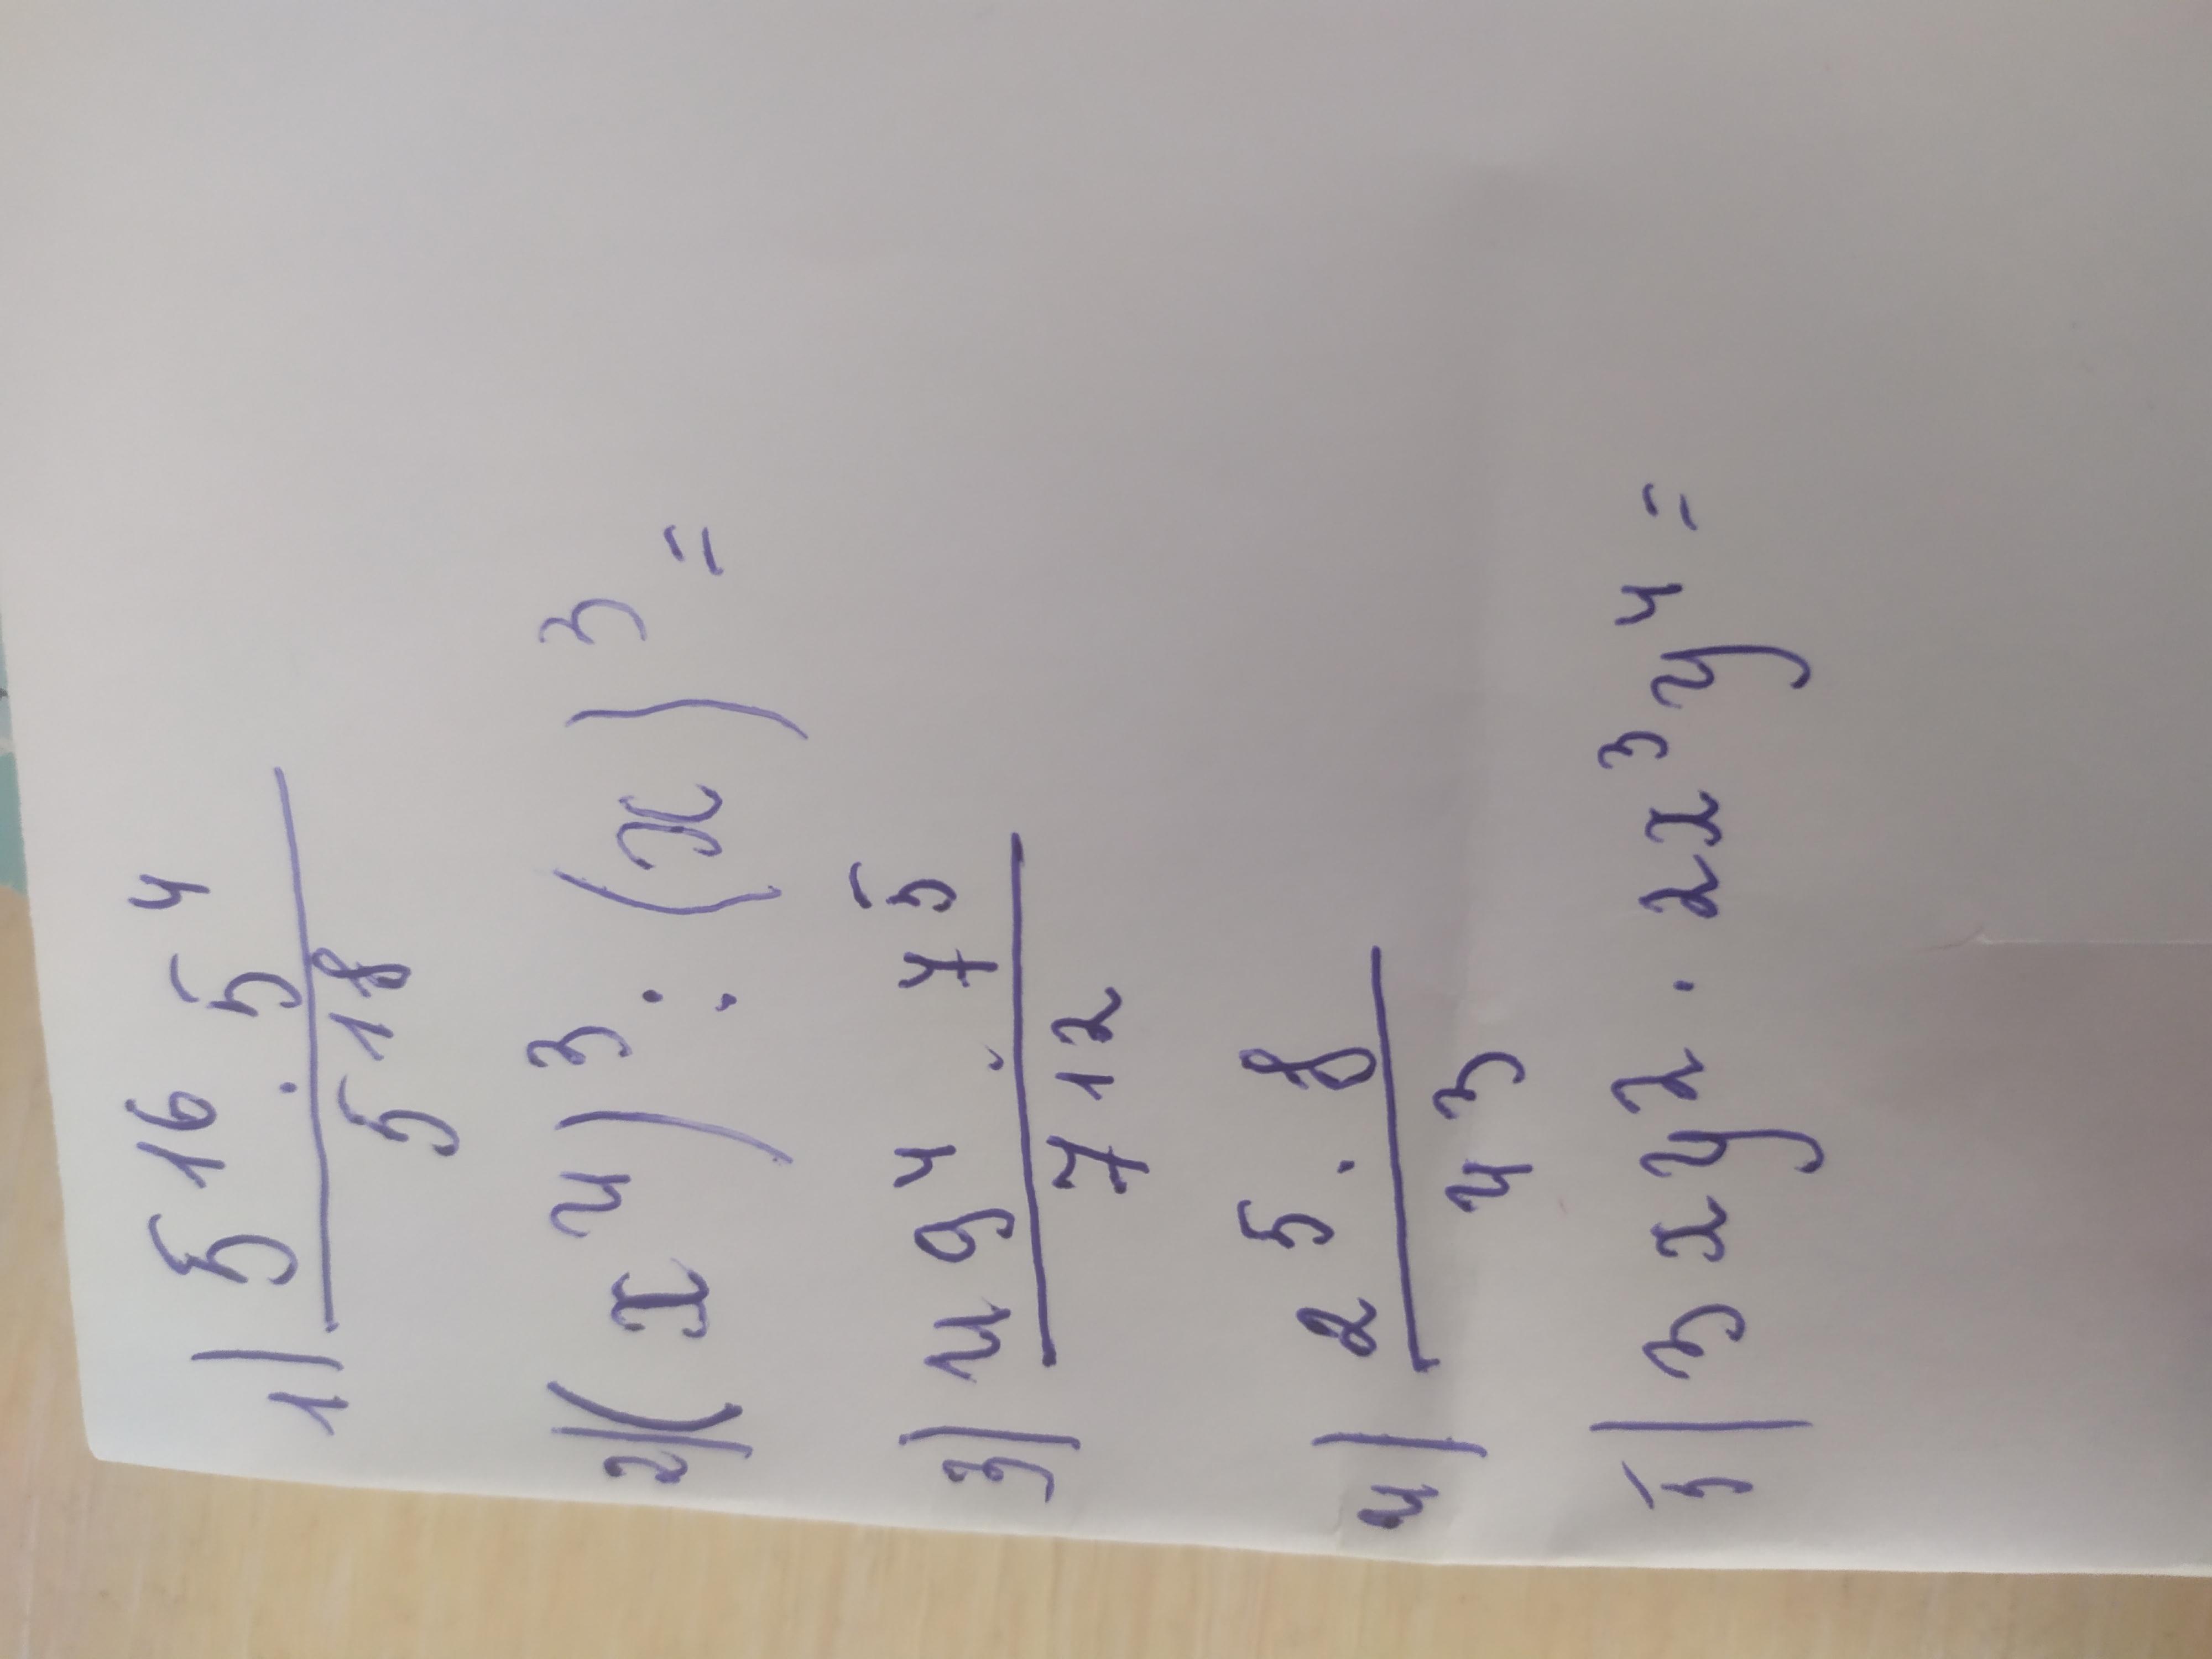 1) 5¹⁶ · 5⁴
5¹⁸
2) (x⁴)³ : (x)³ =
3) 49⁴ · 7⁵
7¹²
4) 2⁵ · 8
4³
5) 3xy² · 2x³y⁴ =